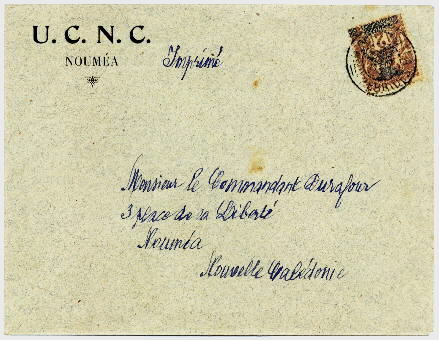 U. C. N. C.
NOUMÉA
Imprimé
Monsieur le Commandant Durafour
3 place de la Liberté
Nouméa
Nouvelle Calédonie